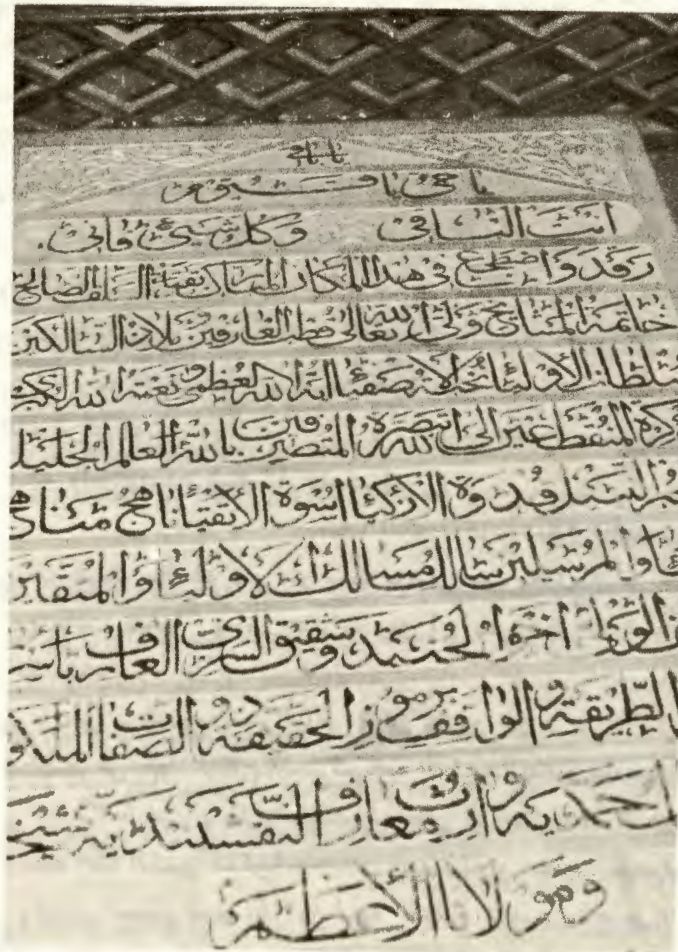 يا حي يا قيوم
انت الباقي وكل شيء فاني
رقد واضطجع في هذا المكان المبارك بقية السلف الصالح
خاتمة المشايخ ولي الله تعالى قطب العارفين ملاذ السالكين
سلطان الاولياء نخبة الاصفياء آية الله العظمى نعمة الله الكبرى
المنقطعين الى الله المتصرفين بالله العالم الجليل
السند قدوة الازكياء اسوة الاتقياء ناهج مناهج
والمرسلين سالك مسالك الاولياء والمتقين
الورى اخ الجنيد وشقيق السري العارف باسرار
الطريقة والواقف برموز الحقيقة ذو الصفات
وارث معارف النقشبندية
ومولانا الاعظم